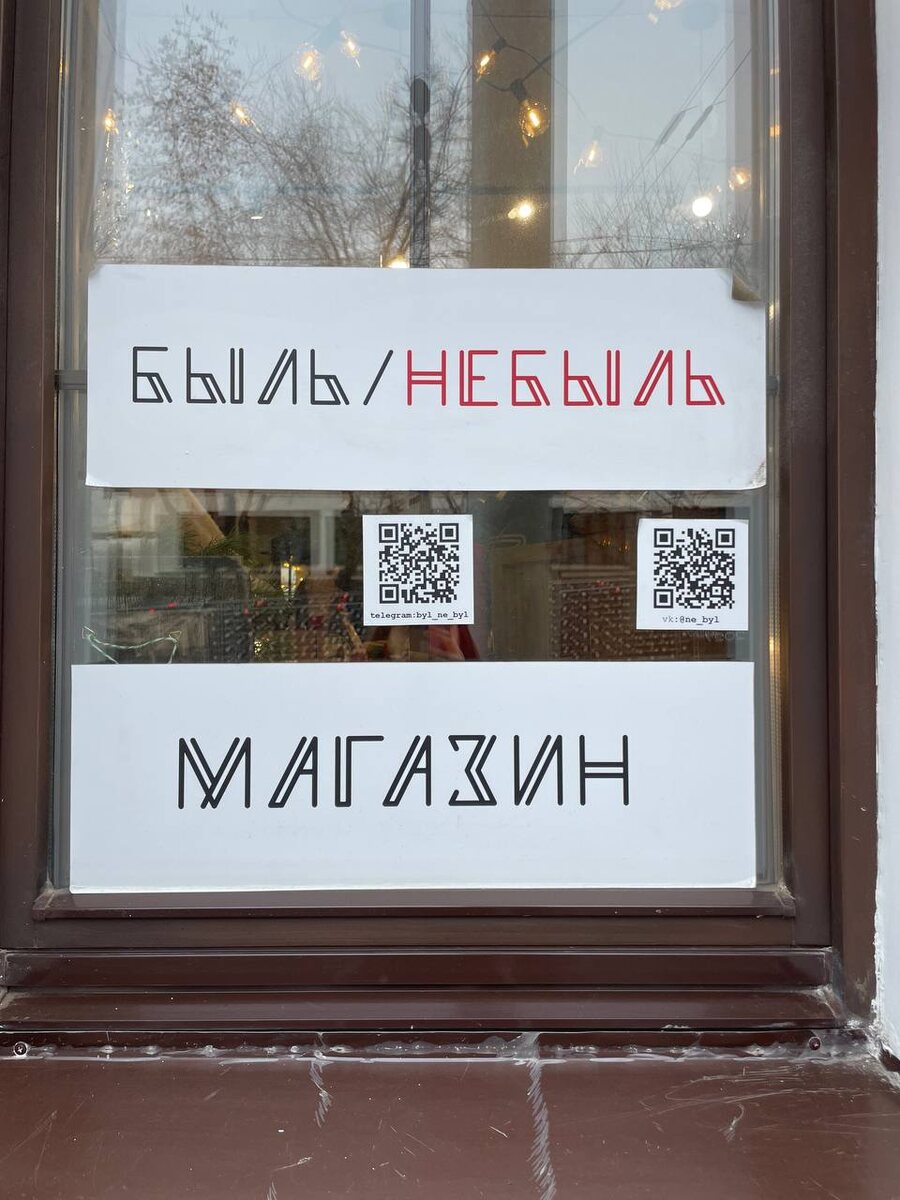 БЫЛЬ/НЕБЫЛЬ
telegram:byl_ne_byl
vk:@ne_byl
МАГАЗИН